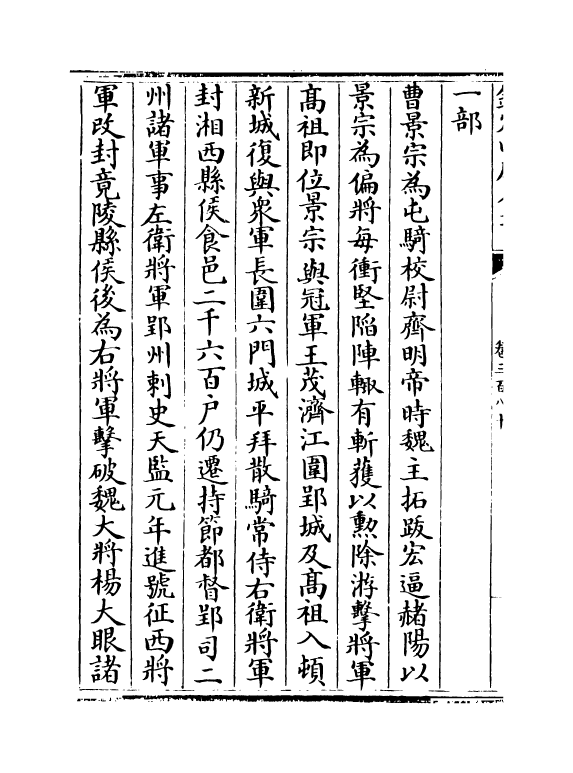 一部
曹景宗為屯騎校尉齊明帝時魏主拓跋宏逼赭陽以
景宗為偏將每衝堅陷陣輙有斬獲以勲除游擊將軍
髙祖即位景宗與冠軍王茂濟江圍郢城及髙祖入頓
新城復與衆軍長圍六門城平拜散騎常侍右衛將軍
封湘西縣侯食邑二千六百户仍遷持節都督郢司二
州諸軍事左衛將軍郢州刺史天監元年進號征西將
軍改封竟陵縣侯後為右將軍擊破魏大將楊大眼諸
卷三百八十